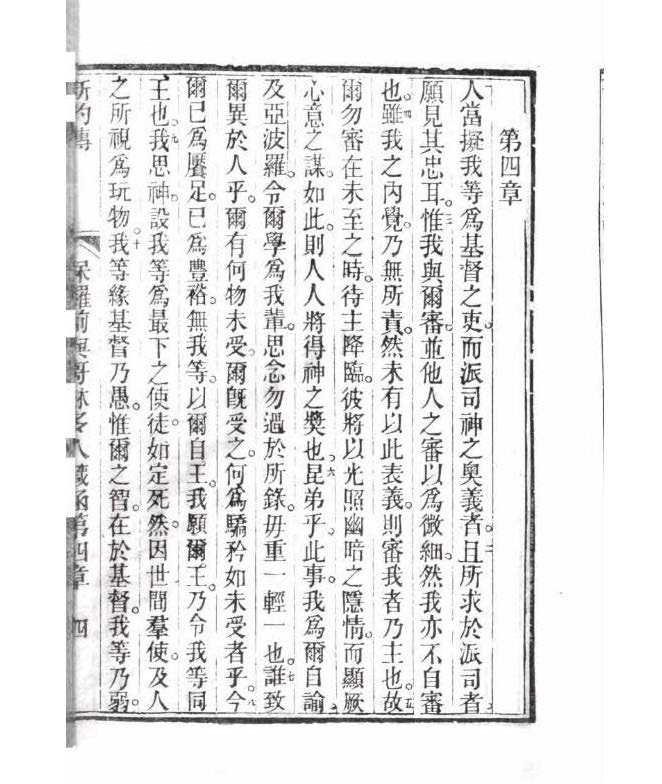 第四章
人當擬我等爲基督之吏。而派司神之奧義者。二且所求於派司者
願見其忠耳。三惟我與爾審。並他人之審以爲微細。然我亦不自審
也。四雖我之內覺。乃無所責。然未有以此表義。則審我者乃主也。五故
爾勿審在未至之時。待主降臨。彼將以光照幽暗之隱情。而顯厥
心意之謀。如此。則人人將得神之獎也。六昆弟乎。此事。我爲爾自諭
及亞波羅。令爾學爲我輩。思念勿過於所錄。毋重一輕一也。七誰致
爾異於人乎。爾有何物未受。爾旣受之。何爲驕矜如未受者乎。八今
爾已爲饜足。已爲豐裕。無我等。以爾自王。我願爾王。乃令我等同
王也。九我思神。設我等爲最下之使徒。如定死然。因世間羣使及人
之所視爲玩物。十我等緣基督乃愚。惟爾之智。在於基督。我等乃弱。
新約傳 保羅前與哥林多人讖函第四章 四